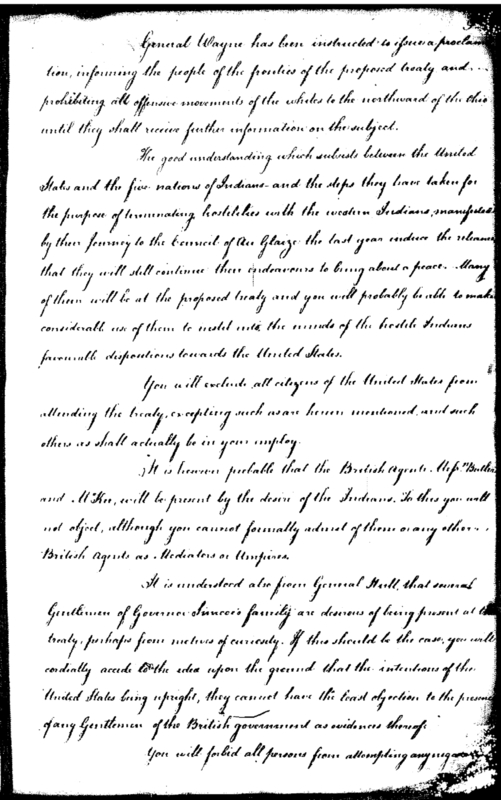 General Wayne has been instructed to issue a proclama
tion, informing the people of the frontiers of the proposed treaty and
prohibiting all offensive movements of the whites to the northward of the Ohio
until they shall receive further information on the subject.
The good understanding which subsists between the United
States and the five nations of Indians and the steps they have taken for
the purpose of terminating hostilities with the western Indians, manifested
by their Journey to the Council of Au Glaize the last year induce the reliance
that they will still continue their endeavours to bring about a peace. Many
of them will be at the proposed treaty and you will probably be able to make
considerable use of them to instil into the minds of the hostile Indians
favourable dispositions towards the United States.
You will exclude all citizens of the United States from
attending the treaty, excepting such as are herein mentioned, and such
others as shall actually be in your employ.
It is however probable that the British Agents, Messrs Butler
and McKee, will be present by the desire of the Indians. To this you will
not object, although you cannot formally admit of them or any other
British Agents as Mediators or Umpires.
It is understood also from General Hull, that several
Gentlemen of Governor Simcoe's family are desirous of being present at the
treaty, perhaps from motives of curiosity. If this should be the case, you will
cordially accede to the idea upon the ground that the intentions of the
United States being upright, they cannot have the least objection to the presence
of any Gentlemen of the British government as evidences thereof.
You will forbid all persons from attempting any